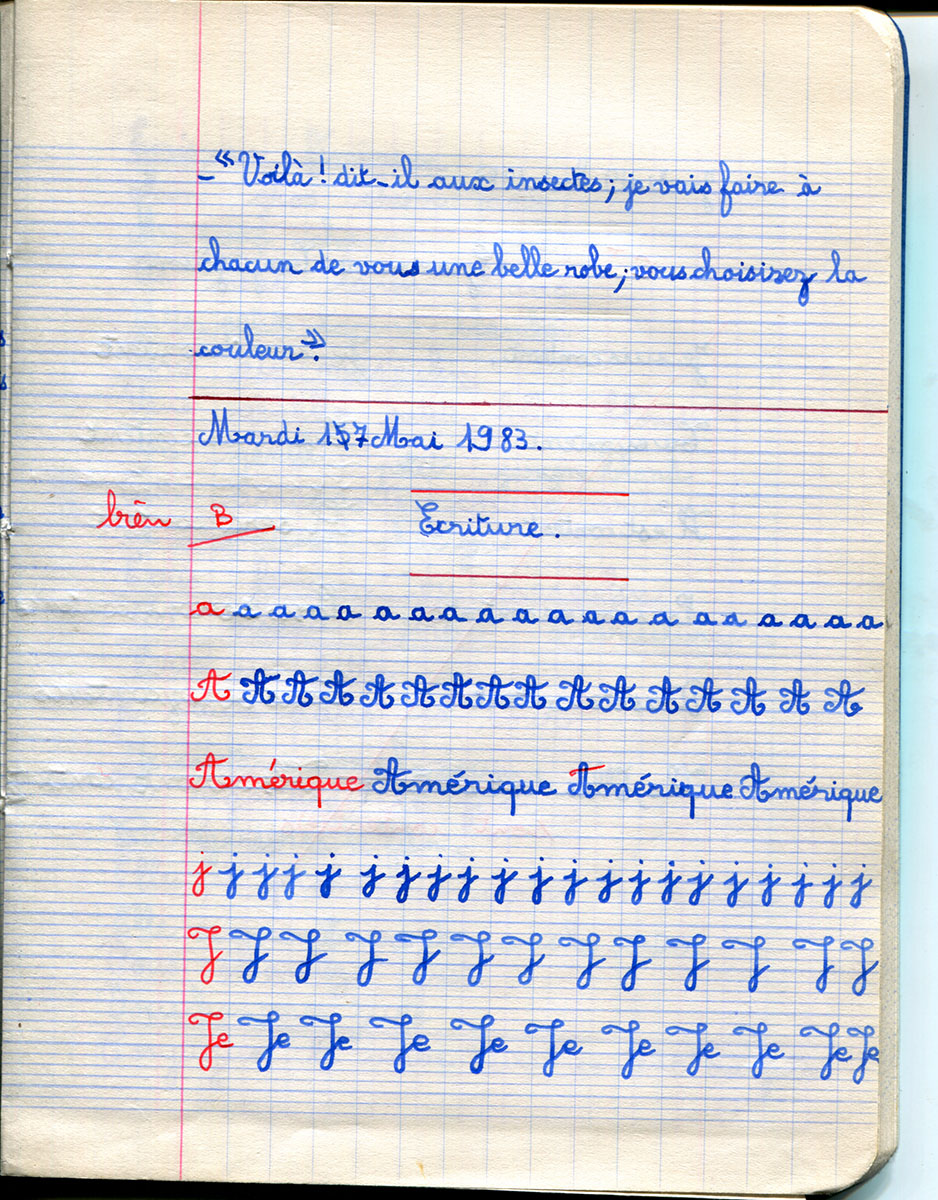 _ « Voilà ! dit-il aux insectes ; je vais faire à
chacun de vous une belle robe ; vous choisisez la
couleur ».
Mardi 17 Mai 1983.
bien B Ecriture.
a a a a a a a a a a a a a a a a a a a a
A A A A A A A A A A A A A A A A
Amérique Amérique Amérique Amérique
j j j j j j j j j j j j j j j j j j j j j
J J J J J J J J J J J J J
Je Je Je Je Je Je Je Je Je Je Je